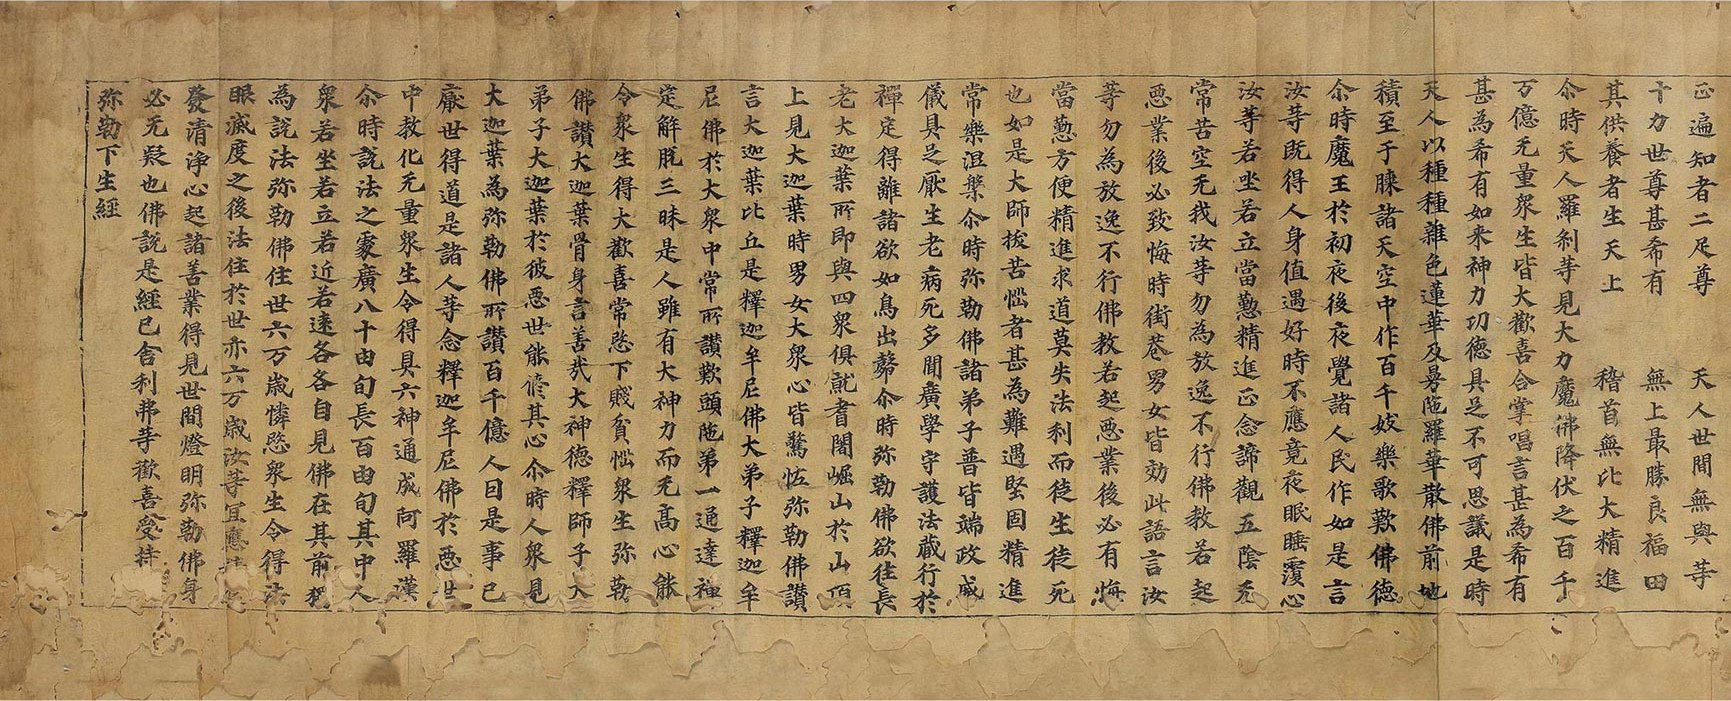 正遍知者二足尊　天人世間無與等
十力世尊甚希有　無上最勝良福田
其供養者生天上　稽首無比大精進
尒時天人羅刹等見大力魔佛降伏之百千
万億无量衆生皆大歡喜合掌唱言甚為希有
甚為希有如来神力功徳具足不可思議是時
天人以種種雜色蓮華及曼陁羅華散佛前地
積至于膝諸天空中作百千妓樂歌歎佛徳
尒時魔王於初夜後夜覺諸人民作如是言
汝等既得人身值遇好時不應竟夜眠睡覆心
汝等若坐若立當懃精進正念諦觀五陰无
常苦空无我汝等勿為放逸不行佛教若起
悪業後必致悔時街巷男女皆効此語言汝
等勿為放逸不行佛教若起悪業後必有悔
當懃方便精進求道莫失法利而徒生徒死
也如是大師拔苦惱者甚為難遇堅固精進
常樂涅槃尒時弥勒佛諸弟子普皆端政威
儀具足厭生老病死多聞廣學守護法藏行於
禪定得離諸欲如鳥出㲉尒時弥勒佛欲往長
老大迦葉所即與四衆俱就耆闍崛山於山頂
上見大迦葉時男女大衆心皆驚恠弥勒佛讃
言大迦葉比丘是釋迦牟尼佛大弟子釋迦牟
尼佛於大衆中常所讃歎頭陁第一通達禪
定解脫三昧是人雖有大神力而无高心能
令衆生得大歡喜常愍下賤貧惱衆生弥勒
佛讃大迦葉骨身言善哉大神徳釋師子大
弟子大迦葉於彼悪世能脩其心尒時人衆見
大迦葉為弥勒佛所讃百千億人因是事已
厭世得道是諸人等念釋迦牟尼佛於悪世
中教化无量衆生令得具六神通成阿羅漢
尒時說法之處廣八十由旬長百由旬其中人
衆若坐若立若近若遠各各自見佛在其前獨
為說法弥勒佛住世六万歳憐愍衆生令得法
眼滅度之後法住於世亦六万歳汝等宜應精
發清淨心起諸善業得見世間燈明弥勒佛身
必无疑也佛說是經已舍利弗等歡喜受持
弥勒下生經